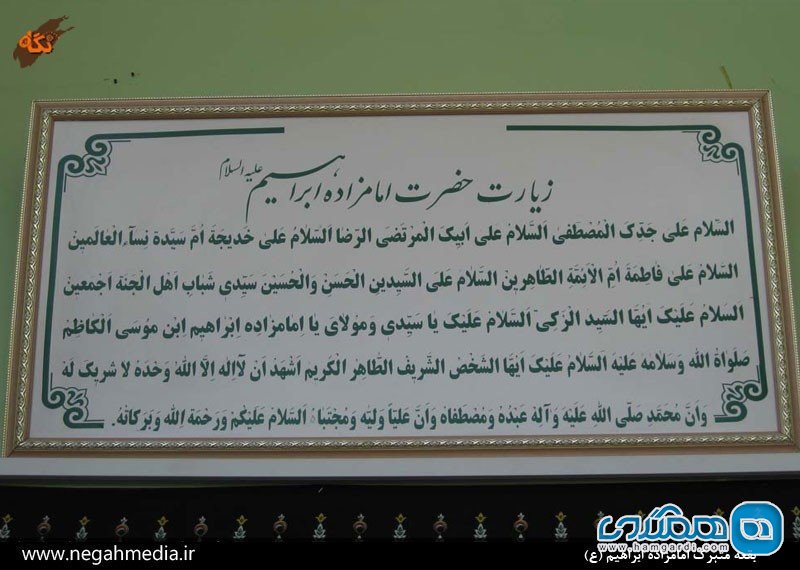 نگاه
زیارت حضرت امامزاده ابراهیم علیه السلام
اَلسَّلامُ عَلی جَدِّکَ الْمُصْطَفی اَلسَّلامُ عَلی اَبیکَ الْمُرْتَضَی الرِّضا اَلسَّلامُ عَلی خَدیجَةَ اُمِّ سَیِّدَةِ نِسآءِ الْعالَمینَ
اَلسَّلامُ عَلی فاطِمَةَ اُمِّ الْاَئِمَّةِ الطّاهِرینَ اَلسَّلامُ عَلَی السَّیِّدینِ الْحَسَنِ وَالْحُسَیْنِ سَیِّدَی شَبابِ اَهْلِ الْجَنَّةِ اَجْمَعینَ
اَلسَّلامُ عَلَیْکَ اَیُّهَا السَّیِّدُ الزَّکِیُّ اَلسَّلامُ عَلَیْکَ یا سَیِّدی وَمَوْلایَ یا اِمامزاده اِبْراهیم ابْنِ مُوسَی الْکاظِمِ
صَلَواةُ اللهِ وَسَلامُهُ عَلَیْهِ اَلسَّلامُ عَلَیْکَ اَیُّهَا الشَّخْصُ الشَّریفُ الطّاهِرُ الْکَریمُ اَشْهَدُ اَنْ لآاِلهَ اِلَّا اللهُ وَحْدَهُ لا شَریکَ لَهُ
وَاَنَّ مُحَمَّدٍ صَلَّی اللهِ عَلَیْهِ وَآلِهِ عَبْدُهُ وَمُصْطَفاهُ وَاَنَّ عَلِیّاً وَلِیُّهُ وَمُجْتَباهُ اَلسَّلامُ عَلَیْکُمْ وَرَحْمَةُ اللهِ وَبَرَکاتُهُ.
همگردی
www.hamgardi.com
www.negahmedia.ir
بقعه متبرک امامزاده ابراهیم (ع)